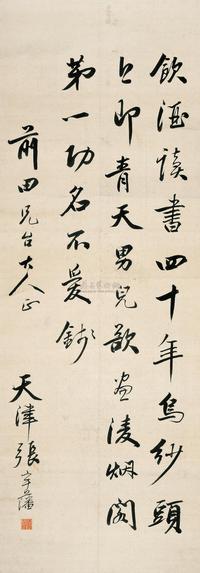 飲酒讀書四十年烏紗頭
上即青天男兒欲畫凌烟閣
第一功名不愛錢
前田兄台大人正
天津張字藩